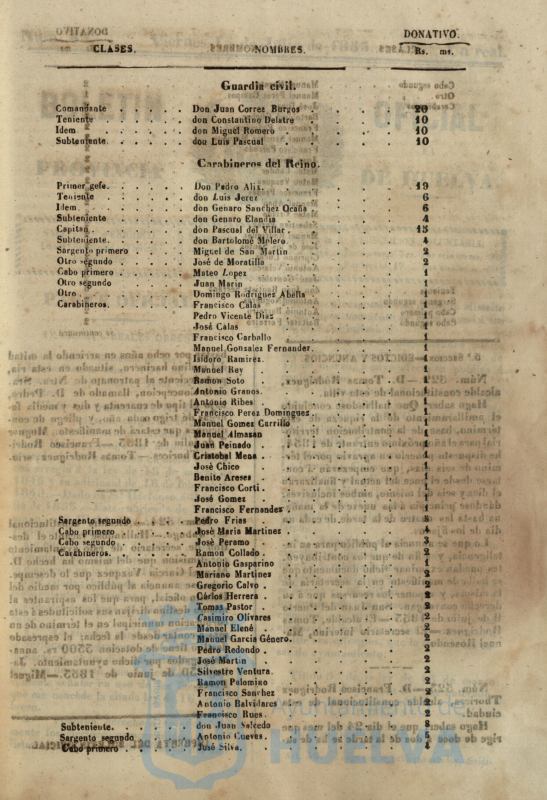 DONATIVO.
CLASES. NOMBRES. Rs. ms.
Guardia civil.
Comandante . . . . . . Don Juan Correz Burgos . . . . 20
Teniente . . . . . . don Constantino Delatre . . . . 10
Idem . . . . . . don Miguel Romero . . . . 10
Subteniente . . . . . . don Luis Pascual . . . . 10
Carabineros del Reino.
Primer gefe. . . . . . Don Pedro Alix. . . . . 19
Teniente . . . . . . don Luis Jerez . . . . 6
Idem. . . . . . don Genaro Sanchez Ocaña . . . . 6
Subteniente . . . . . . don Genaro Elandia . . . . 4
Capitan. . . . . . don Pascual del Villar. . . . . 15
Subteniente. . . . . . don Bartolomé Molero. . . . . 4
Sargento primero . . . . . . Miguel de San Martin . . . . 2
Otro segundo . . . . . . José de Moratilla . . . . 2
Cabo primero . . . . . . Mateo Lopez . . . . 1
Otro segundo . . . . . . Juan Marin . . . . 1
Otro . . . . . . Domingo Rodriguez Abella . . . . 1
Carabineros. . . . . . Francisco Cala . . . . 1
Pedro Vicente Diaz . . . . 1
José Calas . . . . 1
Francisco Carballo . . . . 1
Manuel Gonzalez Fernandez. . . . . 1
Isidoro Ramirez. . . . . 1
Manuel Rey . . . . 1
Ramon Soto . . . . 1
Antonio Granos. . . . . 1
Antonio Ribes . . . . 1
Francisco Perez Dominguez. . . . . 1
Manuel Gomez Carrillo . . . . 1
Manuel Almasan . . . . 1
Juan Peinado . . . . 1
Cristobal Mena . . . . 1
José Chico . . . . 1
Benito Areses . . . . 1
Francisco Corti. . . . . 1
José Gomez . . . . 1
Francisco Fernandez . . . . 1
Sargento segundo . . . . . . Pedro Frias . . . .
Cabo primero . . . . . . José Maria Martinez . . . . 4
Cabo segundo . . . . . . José Peramo . . . . 3
Carabineros. . . . . . Ramon Collado . . . . 2
Antonio Gasparino . . . . 1
Mariano Martinez . . . . 2
Gregorio Calvo . . . . 2
Cárlos Herrera . . . . 2
Tomas Pastor . . . . 2
Casimiro Olivares . . . . 2
Manuel Elené . . . . 2
Manuel Garcia Género. . . . . 2
Pedro Redondo . . . . 2
José Martin . . . . 2
Silvestre Ventura. . . . . 2
Ramon Polomino . . . . 2
Francisco Sanchez . . . . 2
Antonio Balvidares . . . . 2
Francisco Rues . . . . 2
Subteniente. . . . . . don Juan Salcedo . . . . 8
Sargento segundo . . . . . . Antonio Cuevas. . . . . 5
Cabo primero . . . . . . José Silva. . . . . 4
HUELVA